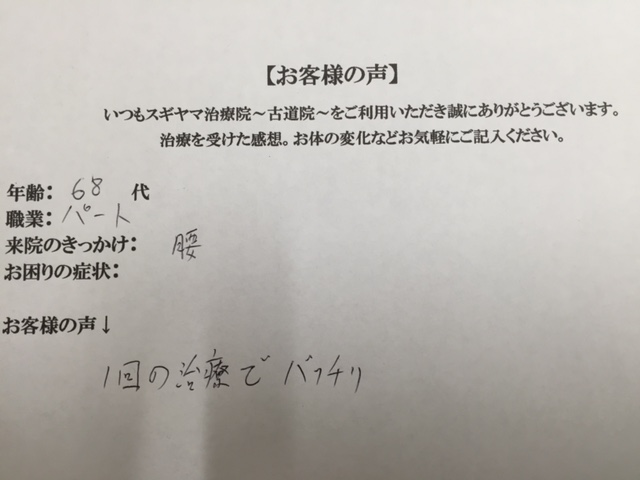 【お客様の声】
いつもスギヤマ治療院～古道院～をご利用いただき誠にありがとうございます。
治療を受けた感想。お体の変化などお気軽にご記入ください。
年齢： 68 代
職業： パート
来院のきっかけ： 腰
お困りの症状：
お客様の声↓
1回の治療で バッチリ